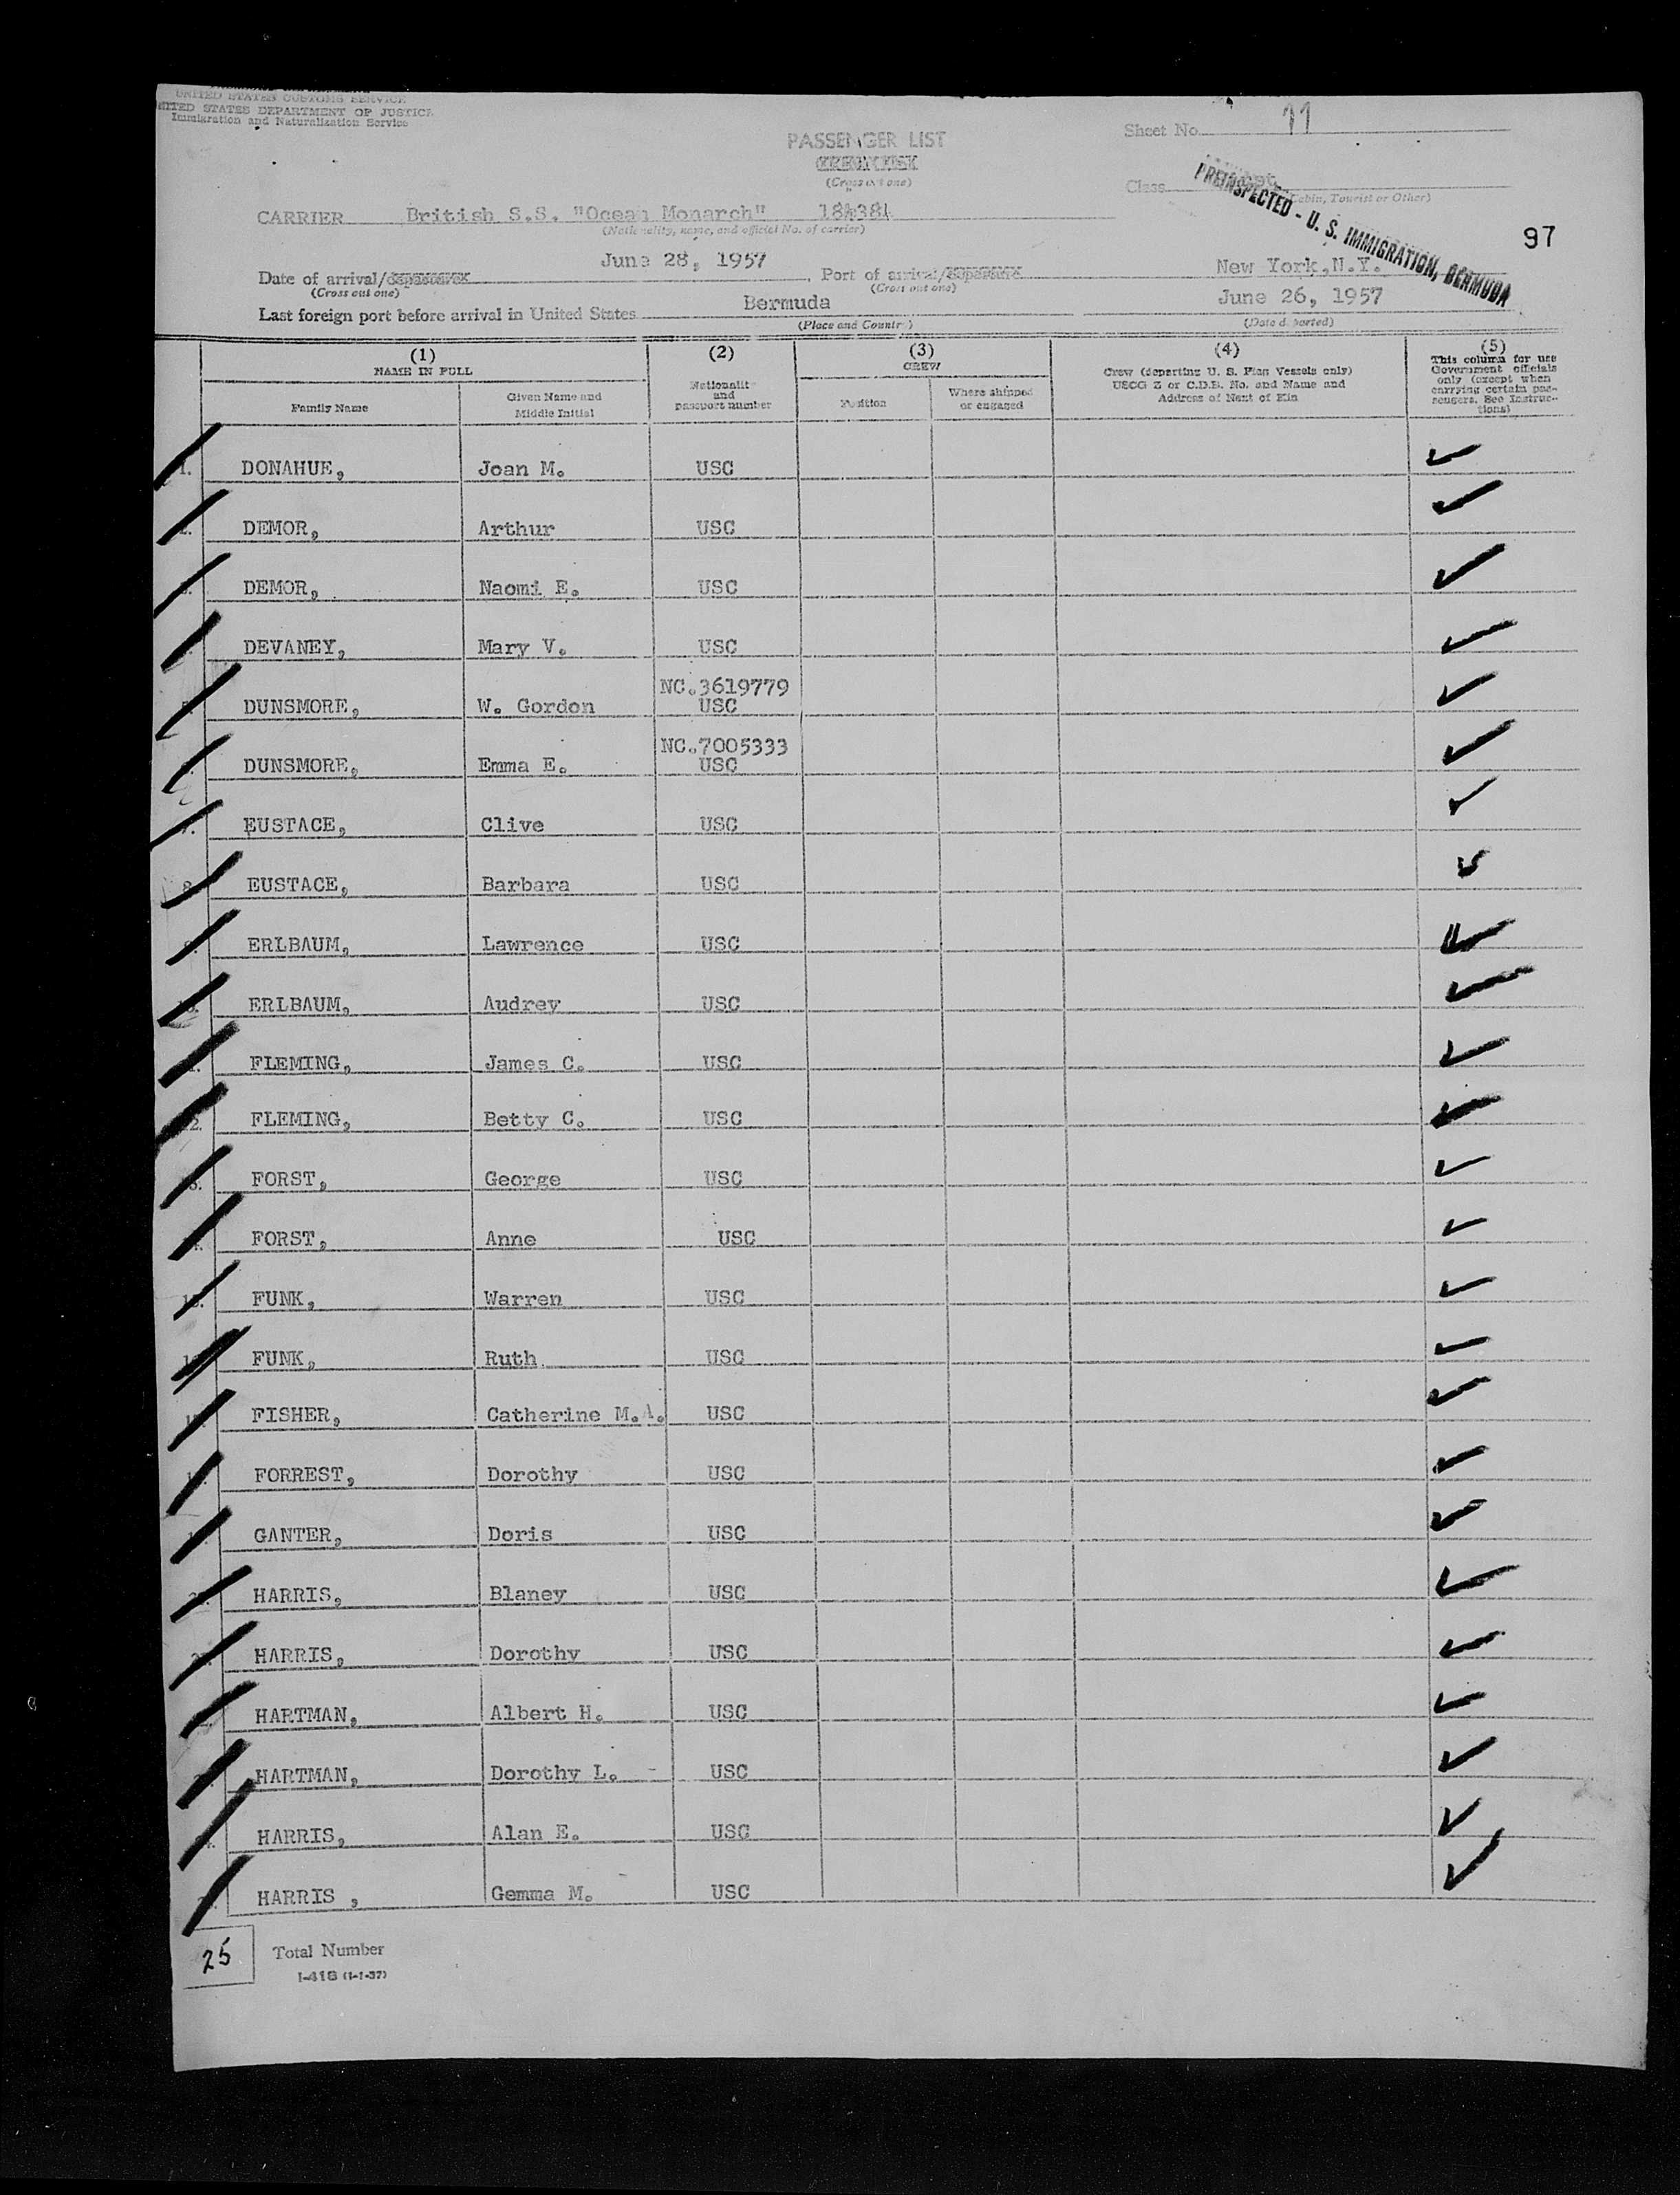 UNITED STATES CUSTOMS SERVICE
UNITED STATES DEPARTMENT OF JUSTICE
Immigration and Naturalization Service
Sheet No. 11
PASSENGER LIST
(Cross out one)
Class
(Cabin, Tourist or Other)
PREINSPECTED - U. S. IMMIGRATION, BERMUDA
97
CARRIER British S.S. "Ocean Monarch" 184384
(Nationality, name, and official No. of carrier)
Date of arrival/departure June 28, 1957, Port of arrival/departure New York, N.Y.
(Cross out one) (Cross out one)
Last foreign port before arrival in United States Bermuda June 26, 1957
(Place and Country) (Date departed)
(1) (2) (3) (4) (5)
NAME IN FULL
Family Name
Given Name and
Middle Initial
Nationality
and
passport number
CREW
Position
Where shipped
or engaged
Crew (departing U. S. Flag Vessels only)
USCG Z or C.D.B. No. and Name and
Address of Next of Kin
This column for use
Government officials
only (except when
carrying certain pas-
sengers. See Instruc-
tions)
1. DONAHUE, Joan M. USC
DEMOR, Arthur USC
DEMOR, Naomi E. USC
DEVANEY, Mary V. USC
NC.3619779
DUNSMORE, W. Gordon USC
NC.7005333
DUNSMORE, Emma E. USC
7. EUSTACE, Clive USC
8. EUSTACE, Barbara USC
ERLBAUM, Lawrence USC
ERLBAUM, Audrey USC
FLEMING, James C. USC
12. FLEMING, Betty C. USC
FORST, George USC
FORST, Anne USC
FUNK, Warren USC
FUNK, Ruth USC
FISHER, Catherine M.A. USC
FORREST, Dorothy USC
GANTER, Doris USC
HARRIS, Blaney USC
HARRIS, Dorothy USC
HARTMAN, Albert H. USC
HARTMAN, Dorothy L. USC
HARRIS, Alan E. USC
HARRIS , Gemma M. USC
25 Total Number
I-418 (1-1-57)